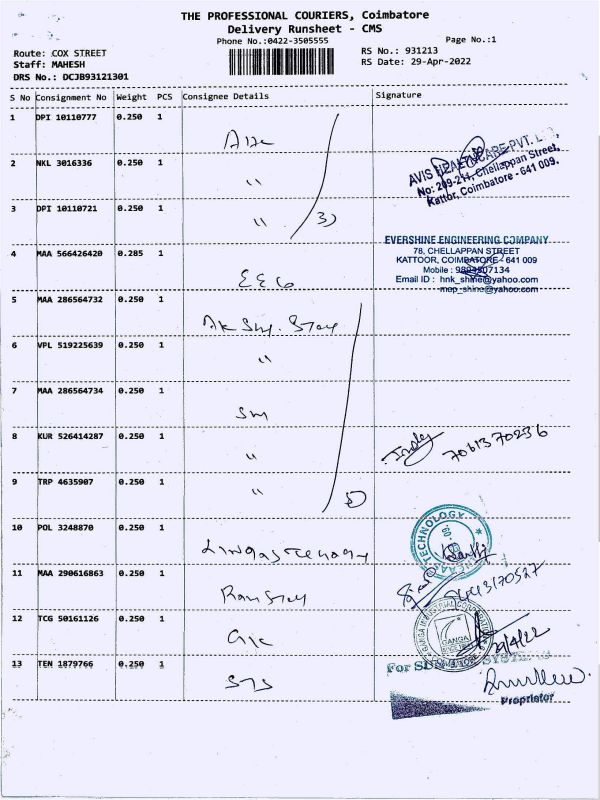 THE PROFESSIONAL COURIERS, Coimbatore
Delivery Runsheet - CMS
Phone No.:0422-3505555 Page No.:1
Route: COX STREET RS No.: 931213
Staff: MAHESH RS Date: 29-Apr-2022
DRS No.: DCJB93121301
S No Consignment No Weight PCS Consignee Details Signature
1 DPI 10110777 0.250 1
AVIS HEALTHCARE PVT. LTD.,
No: 209-211, Chellappan Street,
Kattor, Coimbatore - 641 009.
2 NKL 3016336 0.250 1 "
3 DPI 10110721 0.250 1 " 3)
EVERSHINE ENGINEERING COMPANY
78, CHELLAPPAN STREET
KATTOOR, COIMBATORE - 641 009
Mobile :
Email ID : hnk_shine@yahoo.com
map_shine@yahoo.com
4 MAA 566426420 0.285 1 EEC
5 MAA 286564732 0.250 1
6 VPL 519225639 0.250 1 "
7 MAA 286564734 0.250 1 Sm
8 KUR 526414287 0.250 1 " 7061370236
9 TRP 4635907 0.250 1 " 5)
10 POL 3248870 0.250 1
TECHNOLOGY
11 MAA 290616863 0.250 1
12 TCG 50161126 0.250 1 GIC
GANGA INDUSTRIAL CORPORATION
GANGA
13 TEN 1879766 0.250 1 STS
For SYSTEMS
Proprietor